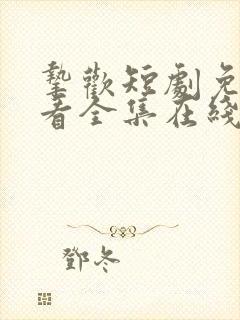 挚歡短劇免
看全集在綫
鄧冬